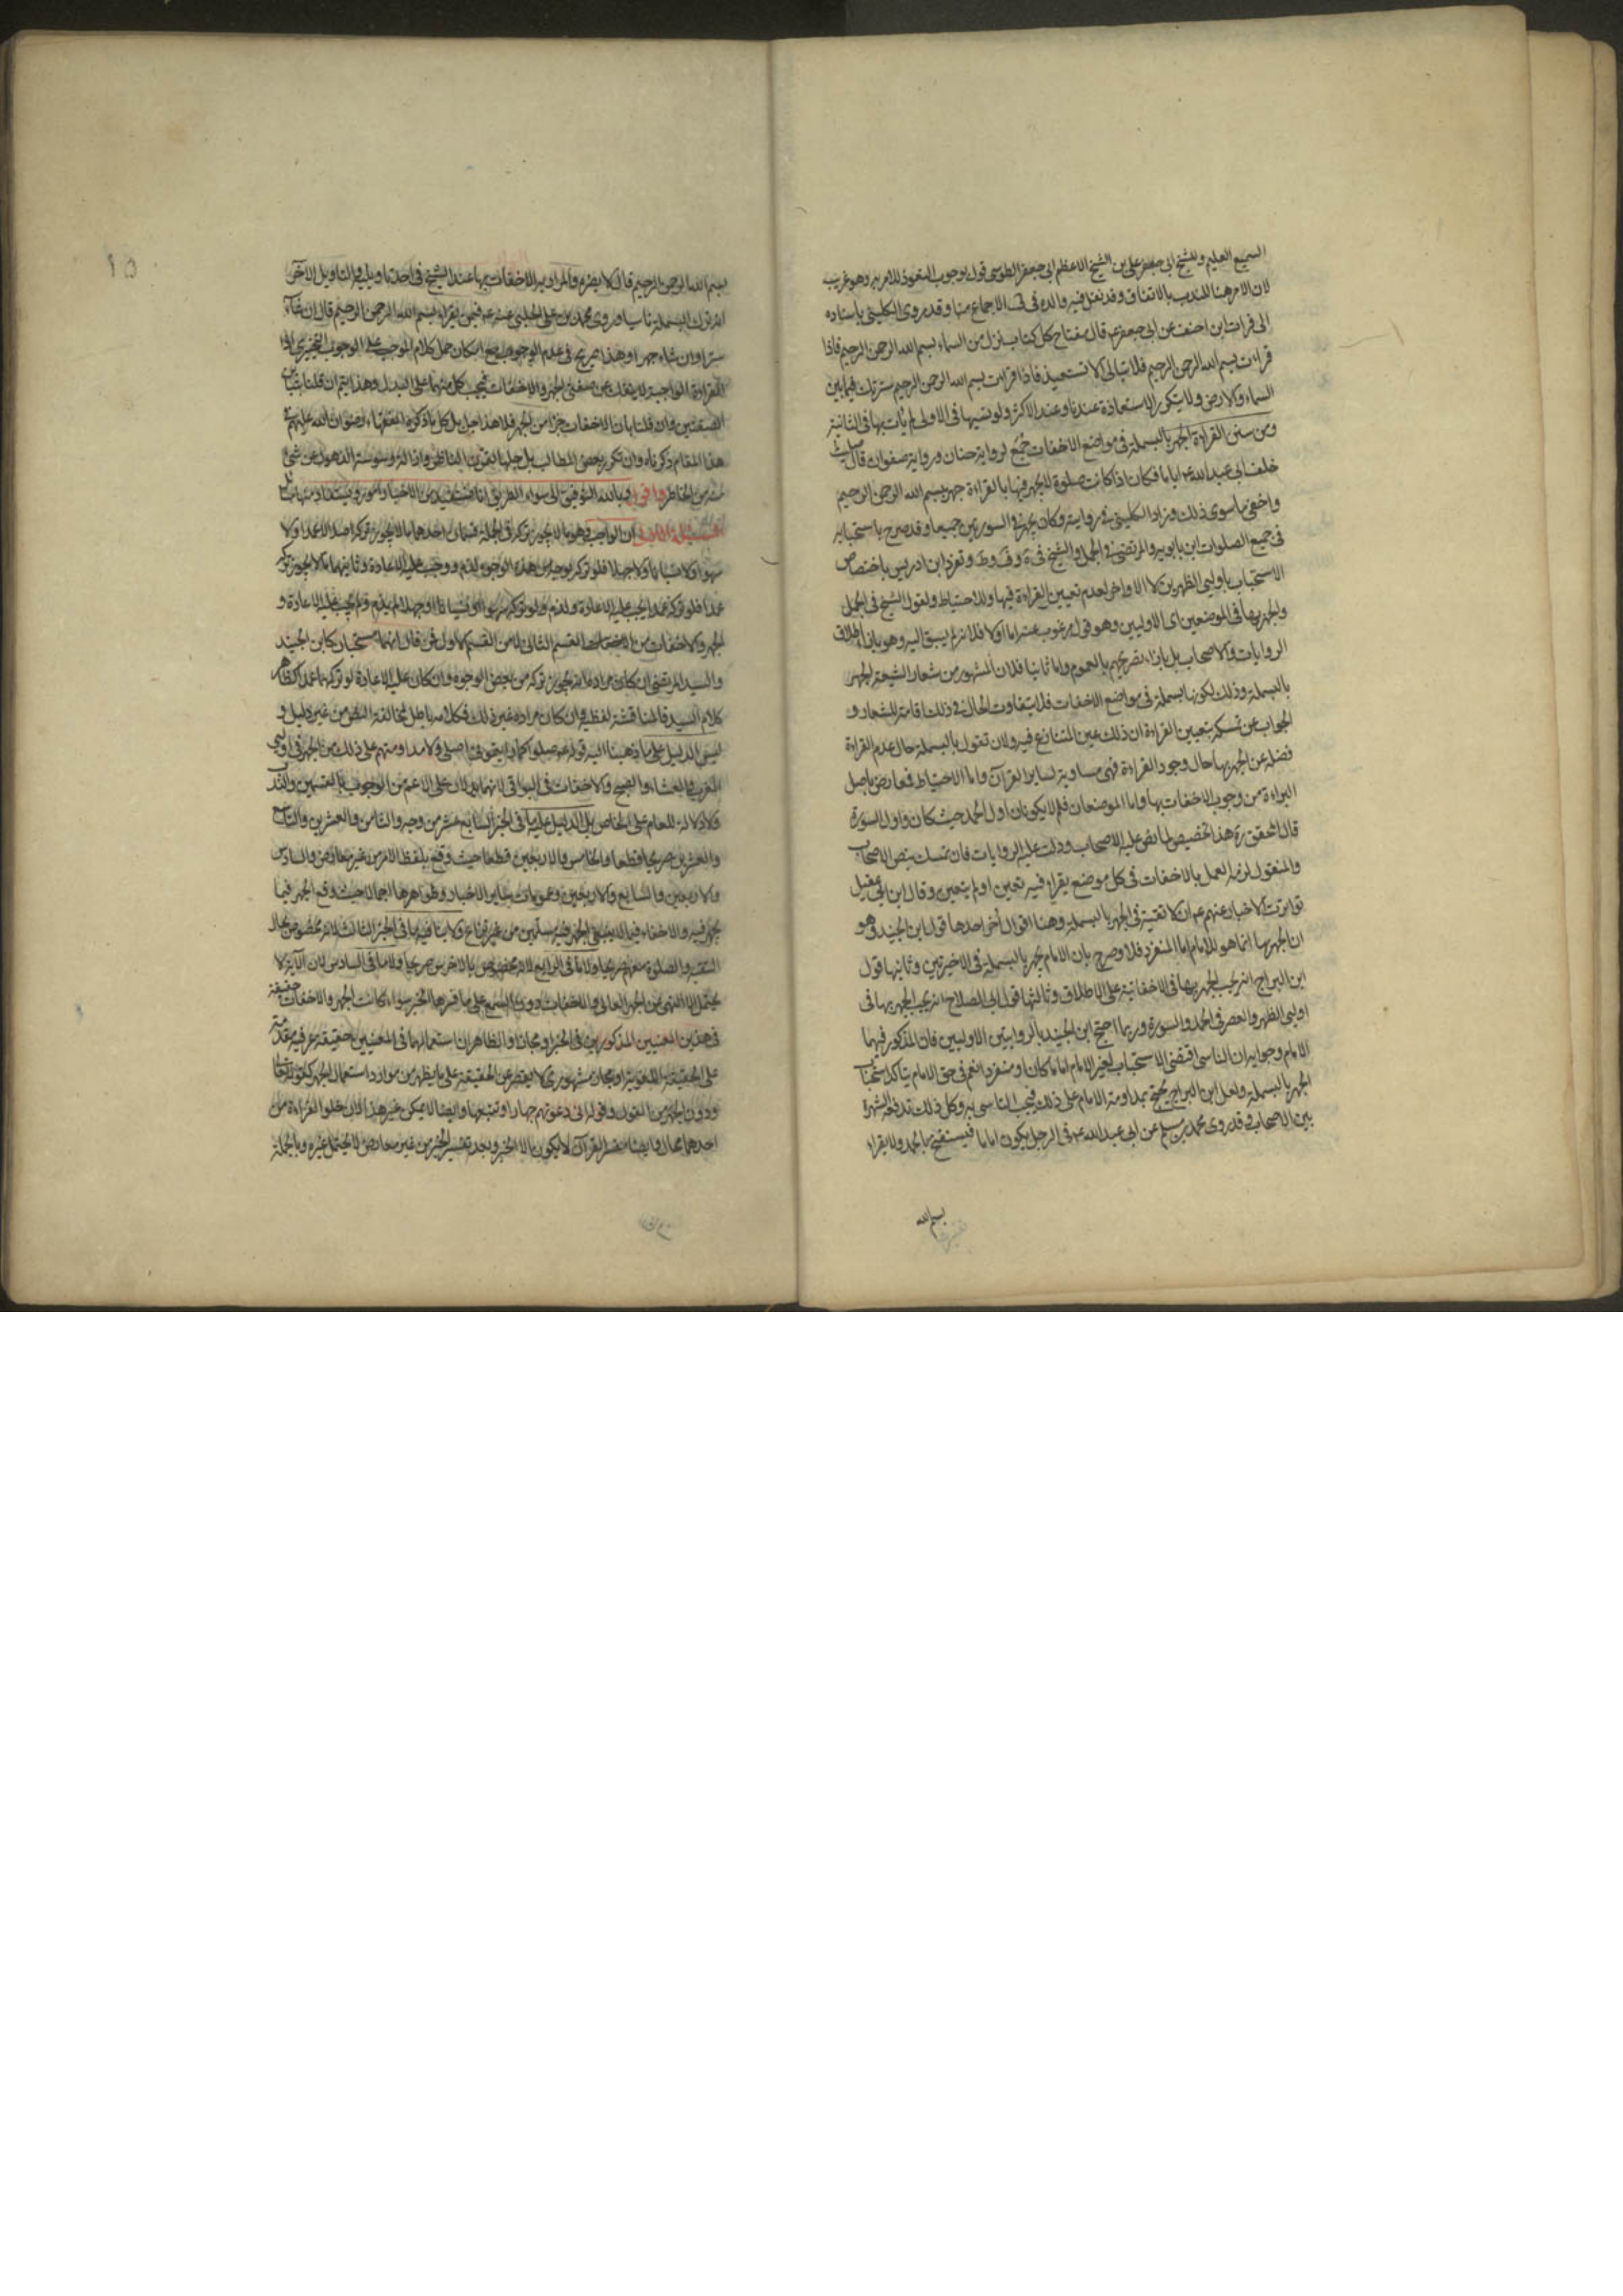 السميع العليم وللشيخ ابى على بن الشيخ الاعظم ابى جعفر الطوسى قول بوجوب التعوذ للامر به وهو غريب
لان الامر هنا للندب بالاتفاق وقد نقل فيه والده فى الاجماع منا وقد روى الكلينى باسناده
الى فرات ابن احنف عن ابى جعفر ع قال مفتاح كل كتاب نزل من السماء بسم الله الرحمن الرحيم فاذا
قرات بسم الله الرحمن الرحيم فلا تبالى الا تستعيذ فاذا قرات بسم الله الرحمن الرحيم سترتك فيما بين
السماء والارض ولا يتكرر الاستعاذة عندنا وعند الاكثر ولو نسيها فى الاولى لم يات بها فى الثانية
ومن سنن القراءة الجهر بالبسملة فى مواضع الاخفات لرواية حنان ورواية صفوان قال صليت
خلف ابى عبد الله ع اياما فكان اذا كانت صلوة لا يجهر فيها بالقراءة جهر ببسم الله الرحمن الرحيم
واخفى ما سوى ذلك وزاد الكلينى فى روايته وكان يجهر فى السورتين جميعا وقد صرح باستحبابه
فى جميع الصلوات ابن بابويه والمرتضى فى الجمل والشيخ فى وتفرد ابن ادريس باختصاص
الاستحباب باوليى الظهرين لا الاواخر لعدم تعيين القراءة فيها وللاحتياط ولقول الشيخ فى الجمل
والجهر بها فى الموضعين اى الاوليين وهو قول مرغوب عنه اما اولا فلانه لم يسبق اليه وهو بازاء اطلاق
الروايات والاصحاب بل بازاء تصريحهم بالعموم واما ثانيا فلان المشهور من شعار الشيعة الجهر
بالبسملة وذلك لكونها بسملة فى مواضع الاخفات فلا يتفاوت الحال فى ذلك اقامة للشعار و
الجواب عن تمسكه بتعيين القراءة ان ذلك عين المتنازع فيه ولان تقول بالبسملة حال عدم القراءة
فضلة عن الجهر بها حال وجود القراءة فهى مساوية لساير القرآن واما الاحتياط فمعارض باصل
البراءة من وجوب الاخفات بها واما الموضعان فلم لا يكونان اول الحمد حيث كان واول السورة
قال المحقق ره هذا تخصيص لما نص عليه الاصحاب ودلت عليه الروايات فان تمسك بنص الاصحاب
والمنقول لزمه العمل بالاخفات فى كل موضع يقراء فيه تعين او لم يتعين وقال ابن ابى عقيل
تواترت الاخبار عنهم ع ان لا تقية فى الجهر بالبسملة وهنا اقوال أخر احدها قول ابن الجنيد وهو
ان الجهر بها انما هو للامام اما المنفرد فلا وصرح بان الامام يجهر بالبسملة فى الاخيرتين وثانيها قول
ابن البراج انه يجب الجهر بها فى الاخفاتية على الاطلاق وثالثها قول ابى الصلاح انه يجب الجهر بها فى
اوليى الظهر والعصر فى الحمد والسورة وربما احتج ابن الجنيد بالروايتين الاوليين فان المذكور فيهما
الامام وجوابه ان التاسى اقتضى الاستحباب لغير الامام اماما كان او منفردا نعم فى حق الامام يتاكد استحباب
الجهر بالبسملة ولعل ابن البراج يحتج بمداومة الامام على ذلك فيجب التاسى به وكل ذلك تدفعه الشهرة
بين الاصحاب وقد روى محمد بن مسلم عن ابى عبد الله ع فى الرجل يكون اماما فيستفتح بالحمد ولا يقراء
بسم الله
بسم الله الرحمن الرحيم قال لا يضره والمراد به الاخفات بها عند الشيخ فى احد تاويليه والتاويل الآخر
انه ترك البسملة ناسيا وروى محمد بن على الحلبى عنه ع فيمن يقراء بسم الله الرحمن الرحيم قال ان شاء
سرا وان شاء جهرا وهذا صريح فى عدم الوجوب مع امكان حمل كلام الموجب على الوجوب التخييرى اذ
القراءة الواجبة لا ينفك عن صفتى الجهر والاخفات فيجب كل منهما على البدل وهذا يتم ان قلنا بتباين
الصفتين وان قلنا بان الاخفات جزء من الجهر فلا هذا بل كل ما ذكره الفقهاء رضوان الله عليهم فى
هذا المقام ذكرناه وان تكرر بعض المطالب بل جلها لتمرين الناظر وازالة وسوسة الذهول عن شئ
منه من الخاطر واقول وبالله التوفيق الى سواء الطريق انا نستفيد من الاخبار امور ويستفاد منها
ان الواجب وهو ما لا يجوز تركه فى الجملة قسمان احدهما ما لا يجوز تركه اصلا لا عمدا ولا
سهوا ولا نسيانا ولا جهلا فلو تركه بوجه من هذه الوجوه اثم ووجب عليه الاعادة وثانيهما ما لا يجوز تركه
عمدا فلو تركه عمدا يجب عليه الاعادة واثم ولو تركه سهوا او نسيانا او جهلا لم ياثم ولم يجب عليه الاعادة و
الجهر والاخفات من القسم الثانى لا من القسم الاول فمن قال انهما مستحبان كابن الجنيد
والسيد المرتضى ان كان مراده انه يجوز تركه من بعض الوجوه وان كان عليه الاعادة لو تركهما عمدا كظاهر
كلام السيد فالمناقشة لفظية وان كان مراده غير ذلك فكلامه باطل لمخالفة النص من غير دليل و
ليس الدليل على ما ذهبنا اليه قوله ع صلوا كما رايتمونى اصلى ولا مداومتهم على ذلك من الجهر فى اوليى
المغرب والعشاء والصبح والاخفات فى البواقى لانهما يدلان على الاعم من الوجوب بالقسمين والندب
ولا دلالة للعام على الخاص بل الدليل عليه ما فى الخبر السابع عشر من وجه والثامن والعشرين والتاسع
والعشرين صريحا قطعا والخامس والاربعين قطعا حيث وقع بلفظ الامر من غير معارض والسادس
والاربعين والسابع والاربعين وعمومات ساير الاخبار وظواهرها اجمالا حيث وقع الجهر فيما
يجهر فيه والاخفاء فيما لا ينبغى الجهر فيه مسلمين من غير نزاع ولا ينافيه ما فى الخبر الثالث لانه مخصوص بحال
التقية والصلوة معهم صريحا ولا ما فى الرابع لانه مخصوص بالاخرس صريحا ولا ما فى السادس لان الآية لا
يحتمل الا النهى عن الجهر العالى والاخفات دون السمع على ما فسرها الخبر سواء كانت الجهر والاخفات حقيقة
فى هذين المعنيين المذكورين فى الخبر او مجازا والظاهر ان استعمالهما فى المعنيين حقيقة عرفية مقدمة
على الحقيقة اللغوية او مجاز مشهورى لا يقصر عن الحقيقة على ما يظهر من موارد استعمال الجهر كقوله تعالى
ودون الجهر من القول وقوله انى دعوتهم جهارا وتتبعها وايضا لا يمكن غير هذا لان خلو القراءة من
احدهما محال وايضا مفسر القرآن لا يكون الا الخبر وبعد تفسير الخبر من غير معارض لا يحتمل غيره وبالجملة